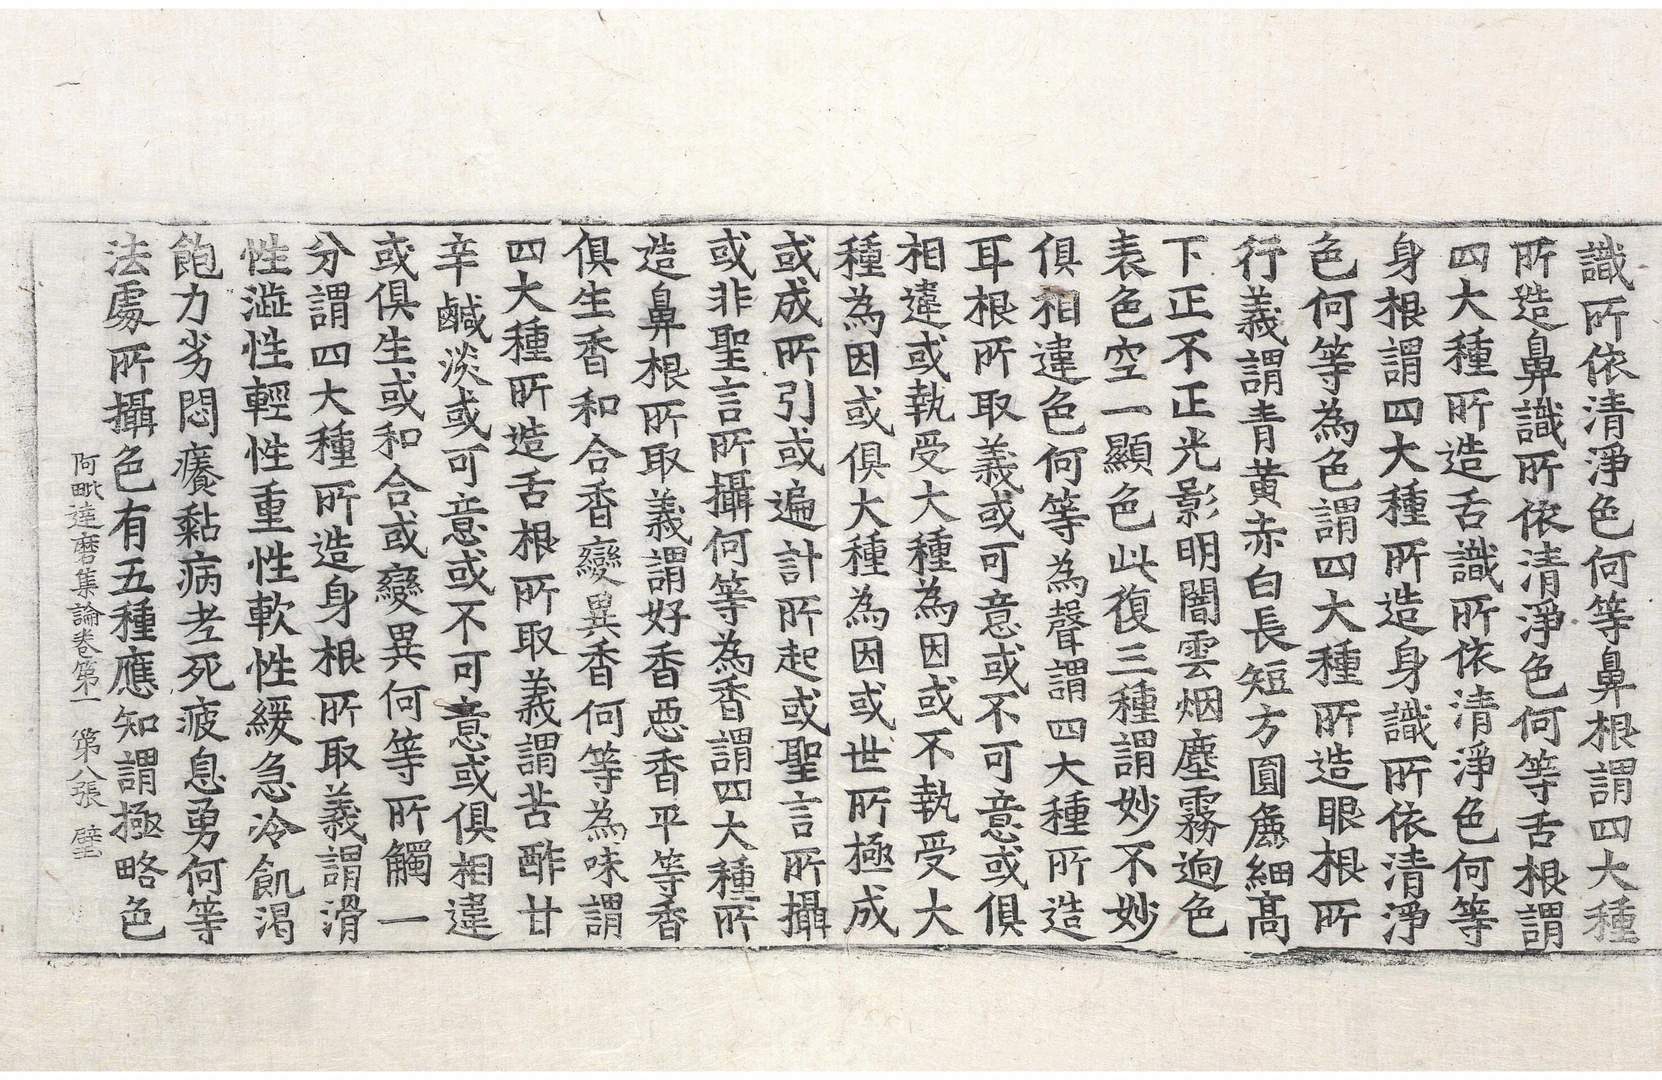 識所依清淨色何等鼻根謂四大種
所造鼻識所依清淨色何等舌根謂
四大種所造舌識所依清淨色何等
身根謂四大種所造身識所依清淨
色何等為色謂四大種所造眼根所
行義謂青黄赤白長短方圓麁細髙
下正不正光影明闇雲烟塵霧逈色
表色空一顯色此復三種謂妙不妙
俱相違色何等為聲謂四大種所造
耳根所取義或可意或不可意或俱
相違或執受大種為因或不執受大
種為因或俱大種為因或世所極成
或成所引或遍計所起或聖言所攝
或非聖言所攝何等為香謂四大種所
造鼻根所取義謂好香惡香平等香
俱生香和合香變異香何等為味謂
四大種所造舌根所取義謂苦酢甘
辛鹹淡或可意或不可意或俱相違
或俱生或和合或變異何等所觸一
分謂四大種所造身根所取義謂滑
性澁性輕性重性軟性緩急冷飢渴
飽力劣悶癢黏病老死疲息勇何等
法處所攝色有五種應知謂極略色
阿毗達磨集論卷第一 第八張 璧